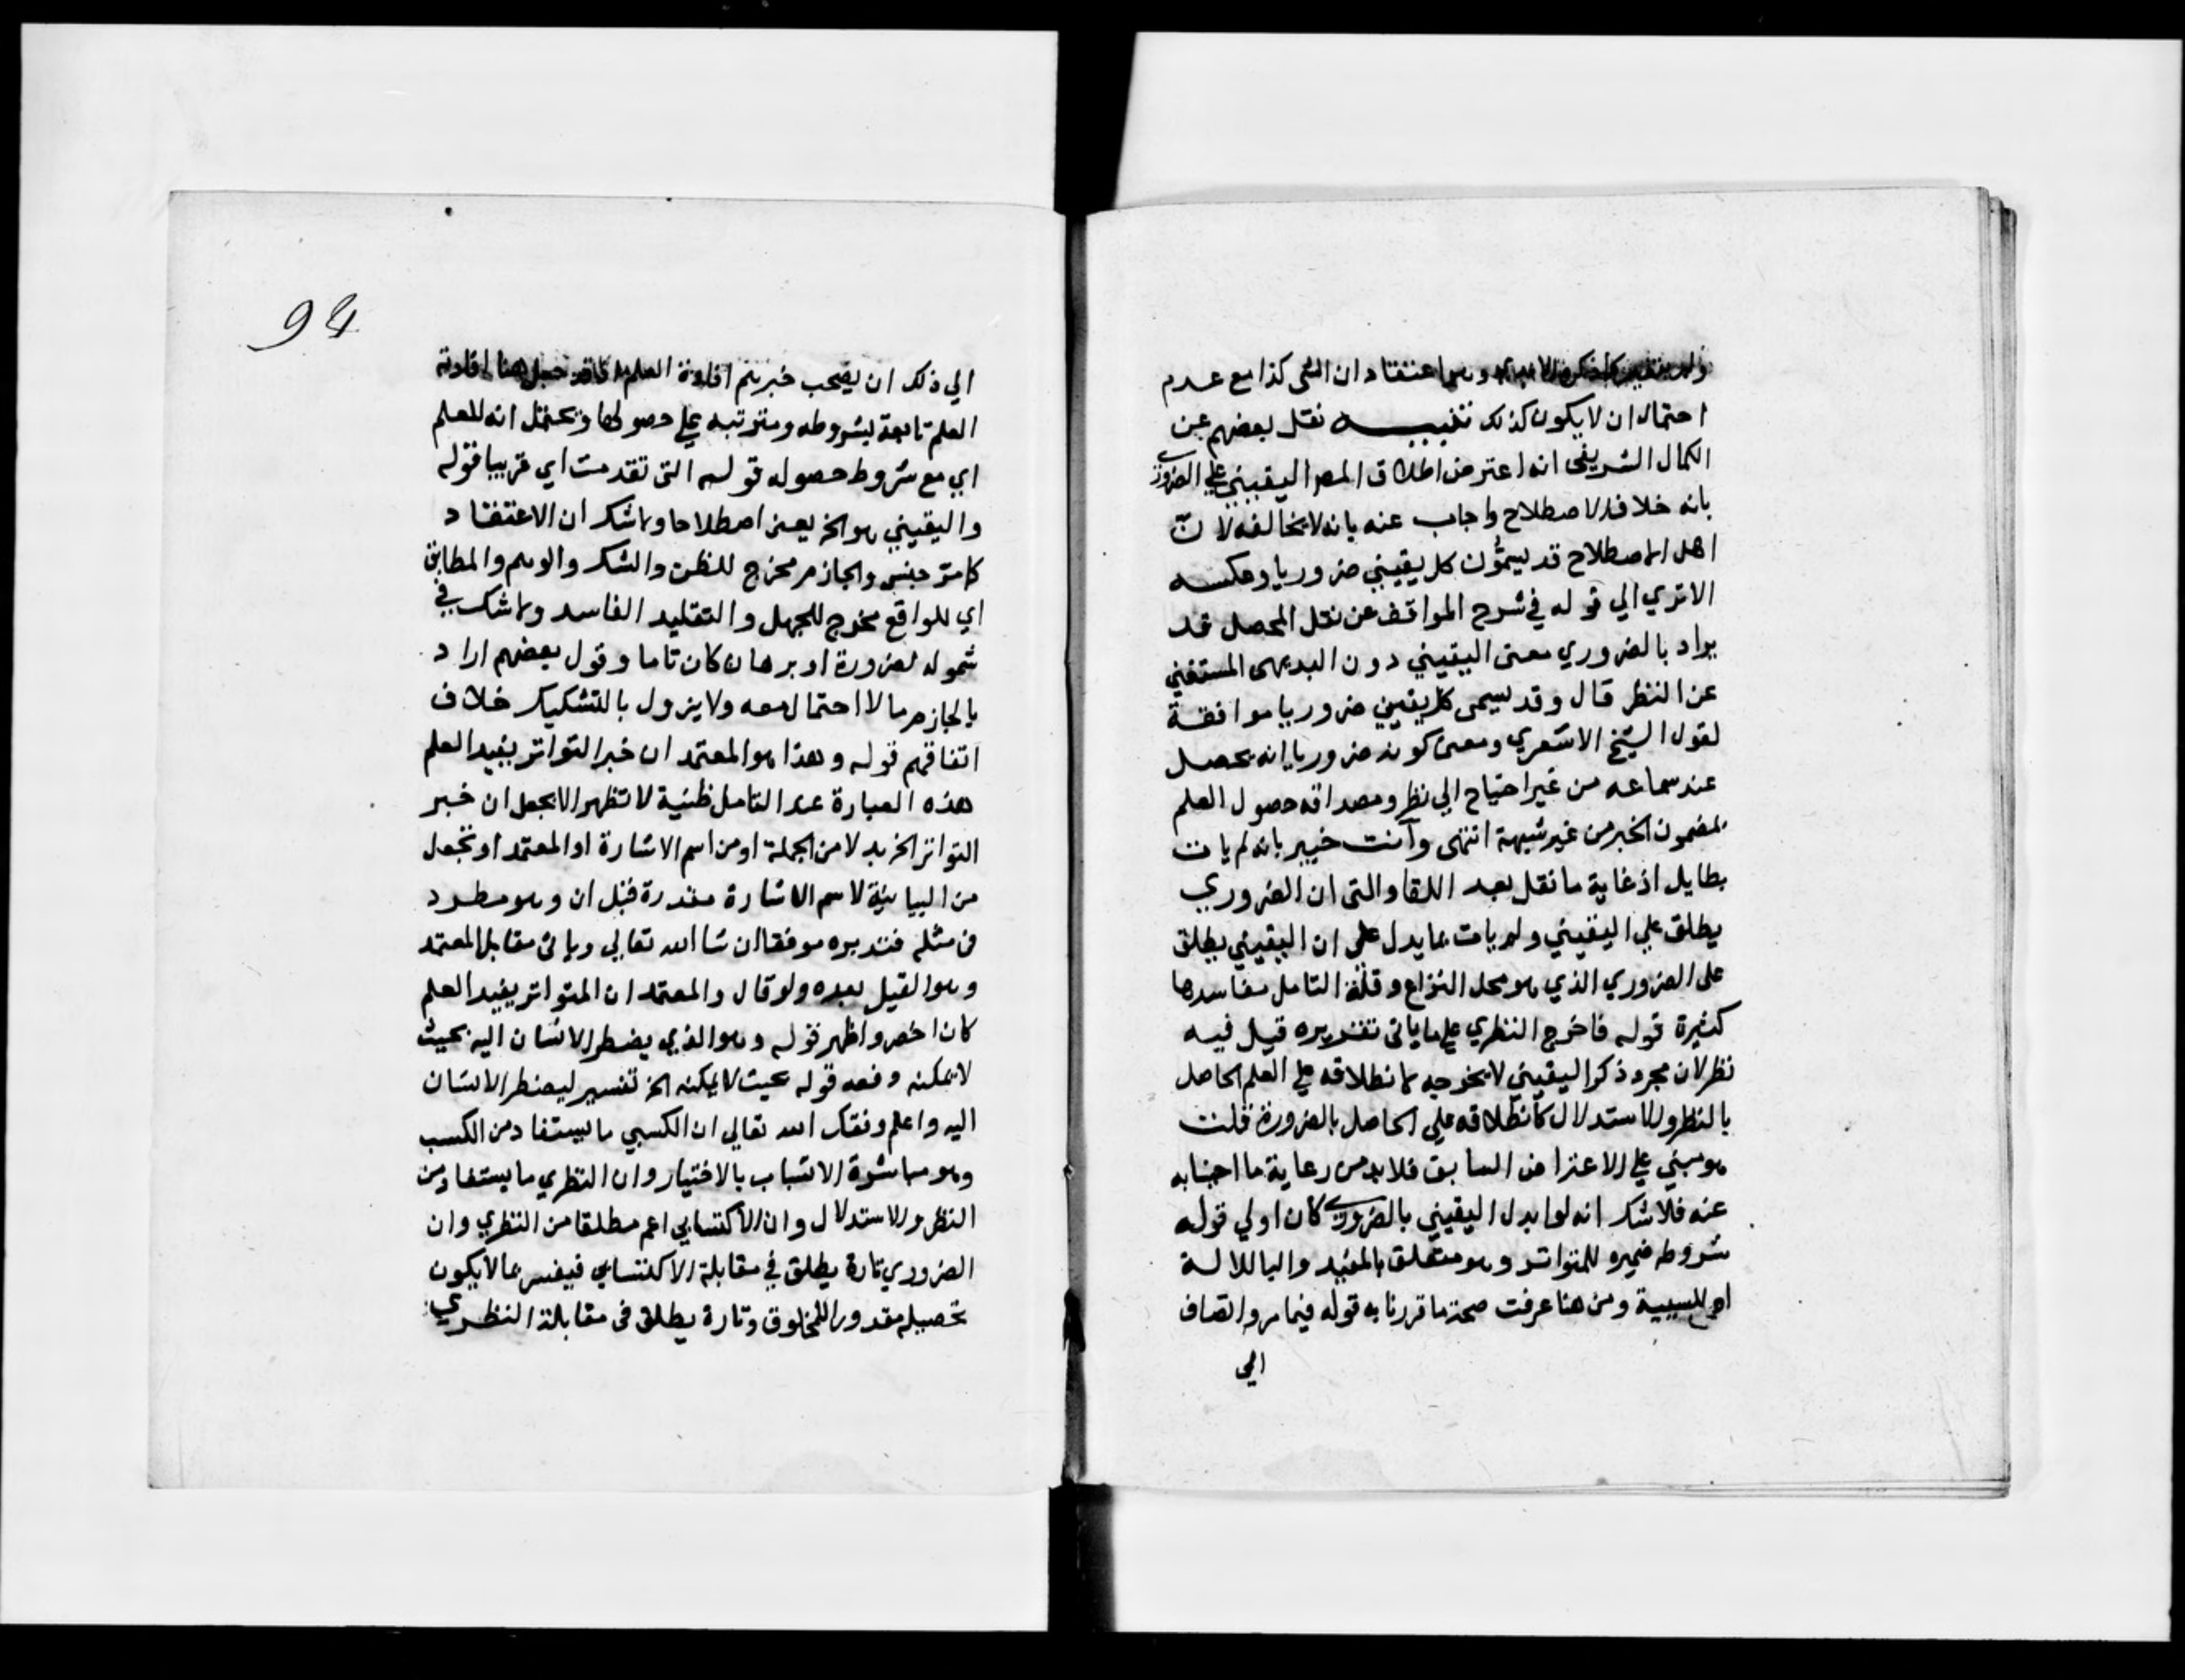 وهما اعتقاد ان الشى كذا مع عدم
احتمال ان لا يكون كذلك تنبيه نقل بعضهم عن
الكمال الشريفى انه اعترض اطلاق المص اليقيني علي الضروري
بانه خلاف الاصطلاح واجاب عنه بانه لا يخالفه لانّ
اهل الاصطلاح قد يسمُّون كل يقيني ضروريا وعكسه
الاتري الي قوله في شرح المواقف عن نقل المحصل قد
يراد بالضروري معنى اليقيني دون البديهى المستغني
عن النظر قال وقد يسمى كل يقيني ضروريا موافقة
لقول الشيخ الاشعري ومعنى كونه ضروريا انه يحصل
عند سماعه من غير احتياج الي نظر ومصداقه حصول العلم
بمضمون الخبر من غير شبهة انتهى وآنت خبير بانه لم يات
بطايل اذ غاية ما نقل بعد اللقا والتى ان الضروري
يطلق علي اليقيني ولم يات بما يدل على ان اليقيني يطلق
على الضروري الذي هو محل النزاع وقلة التامل مفاسدها
كثيرة قوله فاخرج النظري علي ما ياتى تقديره قيل فيه
نظر لان مجرد ذكر اليقيني لا يخرجه لانطلاقه علي العلم الحاصل
بالنظر والاستدلال كانطلاقه علي الحاصل بالضرورة قلت
هو مبني علي الاعتراض السابق فلا بد من رعاية ما اجبنا به
عنه فلا شك انه لو ابدل اليقيني بالضروري كان اولي قوله
شروطه ضميره للمتواتر وهو متعلق بالمفيد والبا للالة
او للسببية ومن هنا عرفت صحة ما قررنا به قوله فيما مر وانضاف
الي
94
الي ذلك ان يصحب خبرهم افادة العلم جعل هنا افادته
العلم تابعة لشروطه ومترتبه علي حصولها ويحتمل انه للعلم
اي مع شروط حصوله قوله التى تقدمت اي قريبا قوله
واليقيني هو الخ يعنى اصطلاحا ولا شك ان الاعتقاد
كا مر جنس والجازم مخرج للظن والشك والوهم والمطابق
اي للواقع مخرج للجهل والتقليد الفاسد ولا شك في
شموله لضرورة او برهان كان تاما وقول بعضهم اراد
بالجازم ما لا احتمال معه ولا يزول بالتشكيك خلاف
اتفاقهم قوله وهذا هو المعتمد ان خبر التواتر يفيد العلم
هذه العبارة عند التامل ظنية لا تظهر الا بجعل ان خبر
التواتر الخ بدلا من الجملة او من اسم الاشارة او المعتمد او تجعل
من البيانية لاسم الاشارة مقدرة قبل ان وهو مطرد
فى مثله فتدبره موفقا ان شا الله تعالي وياتى مقابل المعتمد
وهو القيل بعده ولو قال والمعتمد ان المتواتر يفيد العلم
كان اخصر واظهر قوله وهو الذي يضطر الانسان اليه بحيث
لا يمكنه دفعه قوله بحيث لا يمكنه الخ تفسير ليضطر الانسان
اليه واعلم وفقك الله تعالي ان الكسبي ما يستفاد من الكسب
وهو مباشرة الاسباب بالاختيار وان النظري ما يستفاد من
النظر والاستدلال وان الاكتسابي اعم مطلقا من النظري وان
الضروري تارة يطلق في مقابلة الاكتسابي فيفسر بما لا يكون
تحصيله مقدورا للمخلوق وتارة يطلق فى مقابلة النظري